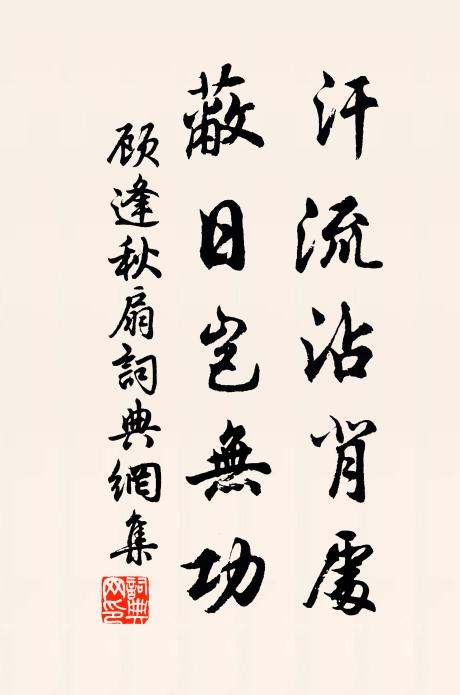 汗流沾背處
蔽日岂無功
顾逢秋扇詞典網集
詞典网印